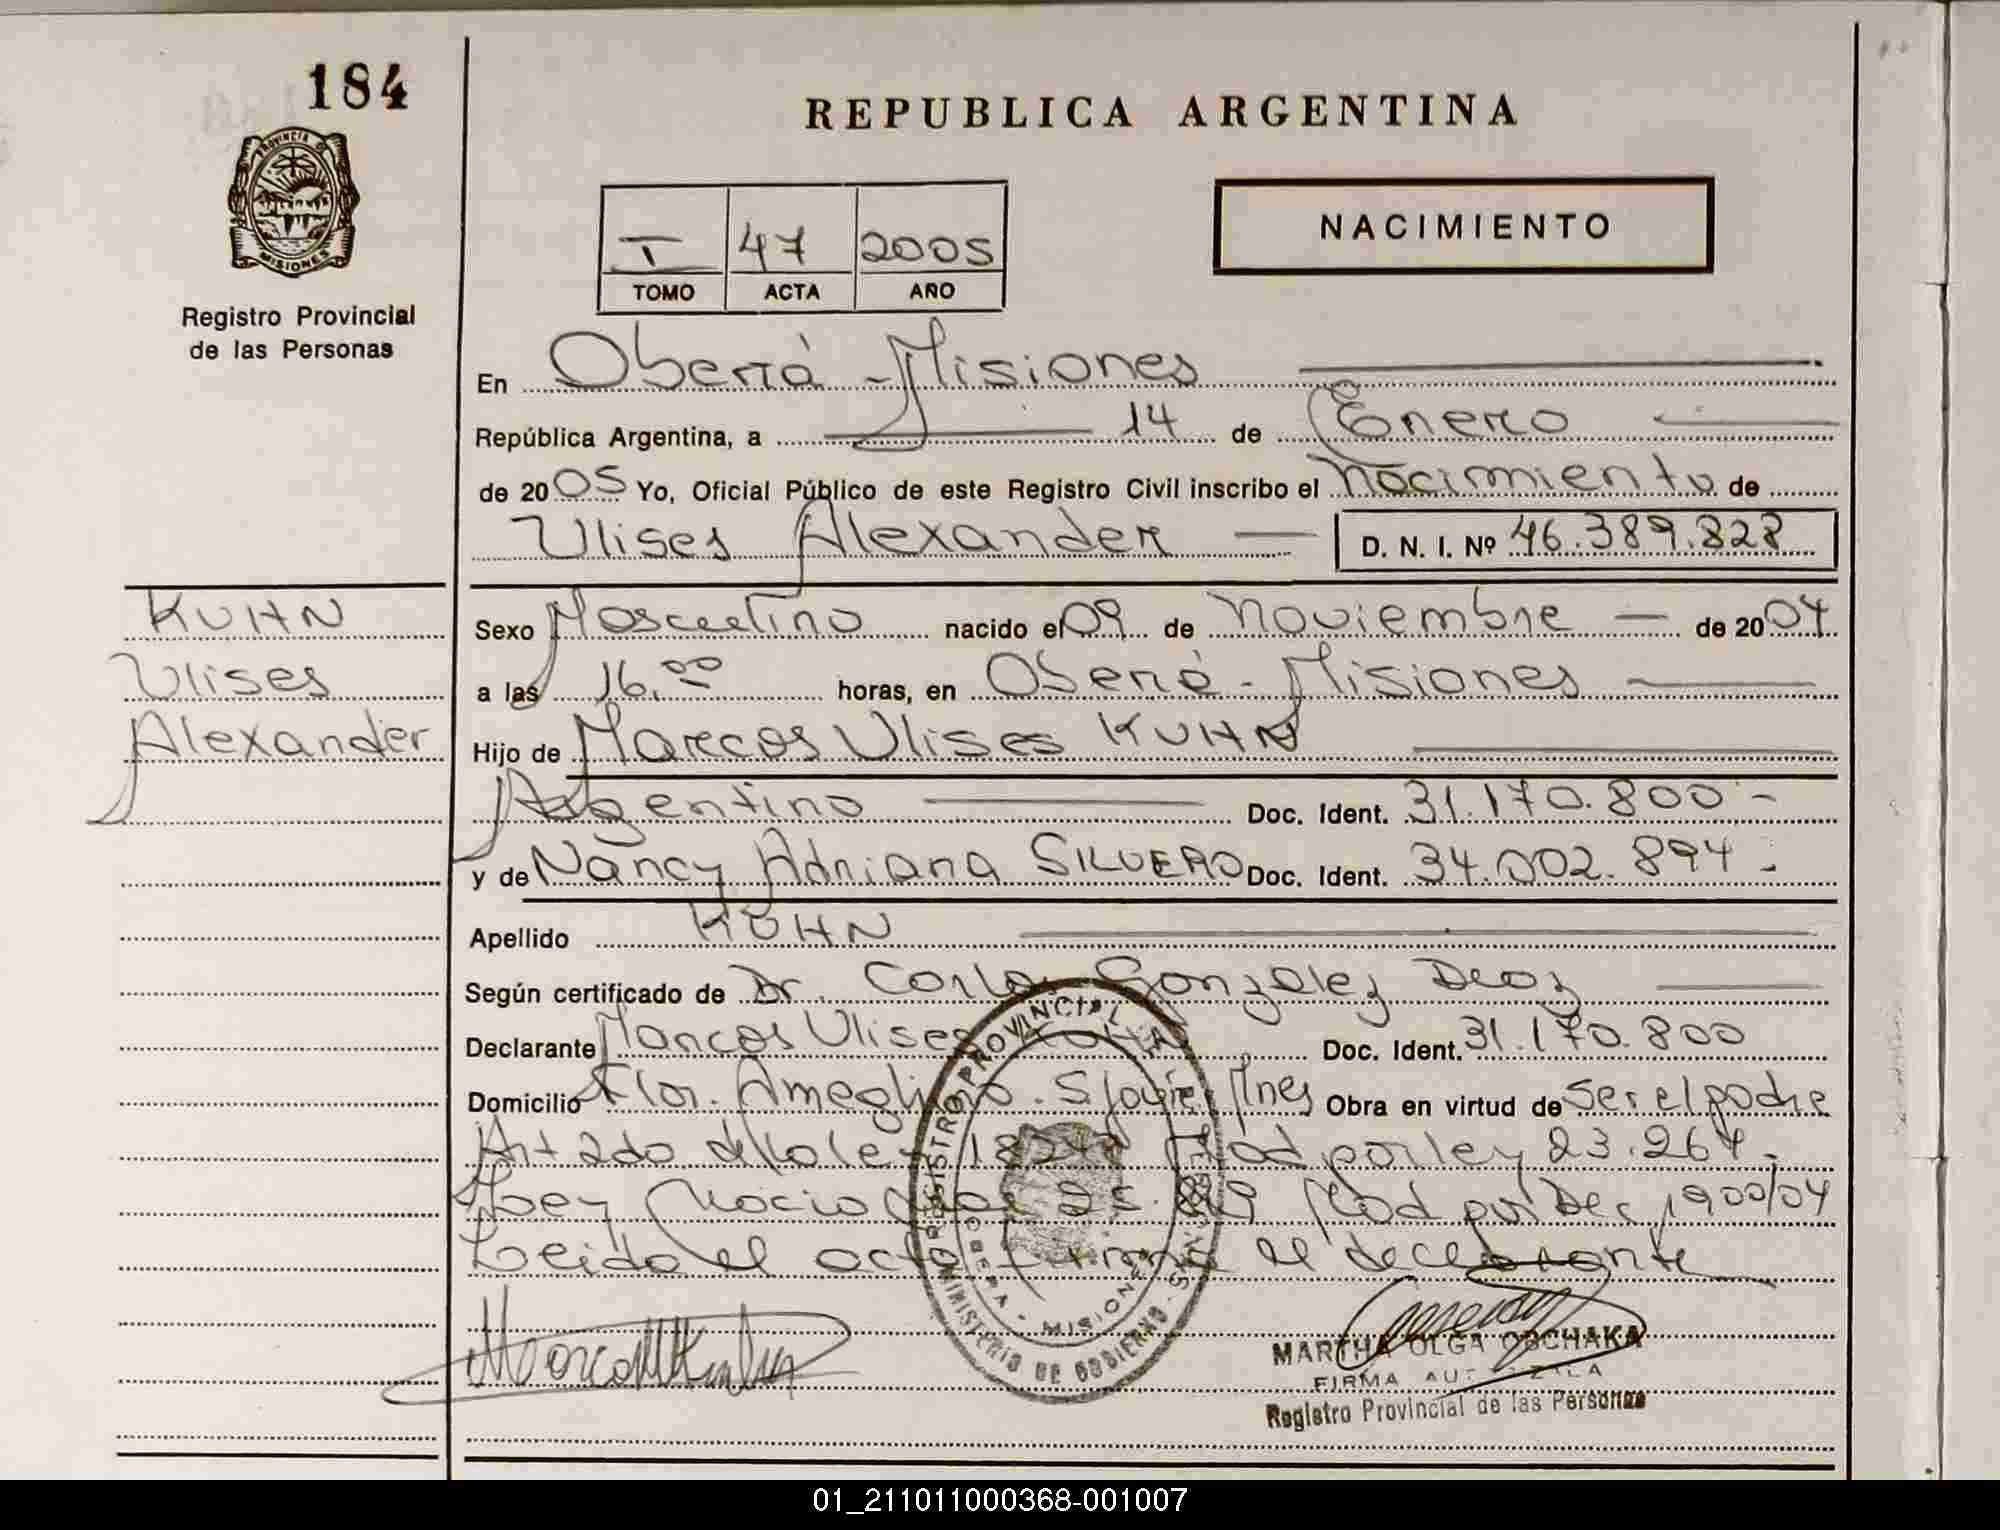 184
PROVINCIA DE
MISIONES
Registro Provincial
de las Personas
REPUBLICA ARGENTINA
I 47 2005
TOMO ACTA AÑO
NACIMIENTO
En Oberá - Misiones
República Argentina, a 14 de Enero
de 2005 Yo, Oficial Público de este Registro Civil inscribo el Nacimiento de
Ulises Alexander D. N. I. Nº 46.389.828
KUHN
Ulises
Alexander
Sexo Masculino nacido el 09 de Noviembre de 2004
a las 16.00 horas, en Oberá - Misiones
Hijo de Marcos Ulises KUHN
Argentino Doc. Ident. 31.170.800 -
y de Nancy Adriana SILVERO Doc. Ident. 34.002.894 -
Apellido KUHN
Según certificado de Dr. Carlos Gonzalez
Declarante Marcos Ulises Doc. Ident. 31.170.800
Domicilio Flor. Ameghino. S Javier Mnes Obra en virtud de ser el padre
Art 2do de la ley 18248 Mod por ley 23.264.
Ley Nacional 25.819 Mod por Dec 1900/04
Leida el acta firma el declarante
REGISTRO PROVINCIAL DE LAS PERSONAS
MINISTERIO DE GOBIERNO
OBERA - MISIONES
MARTHA OLGA OBCHAKA
FIRMA AUTORIZADA
Registro Provincial de las Personas
01_211011000368-001007